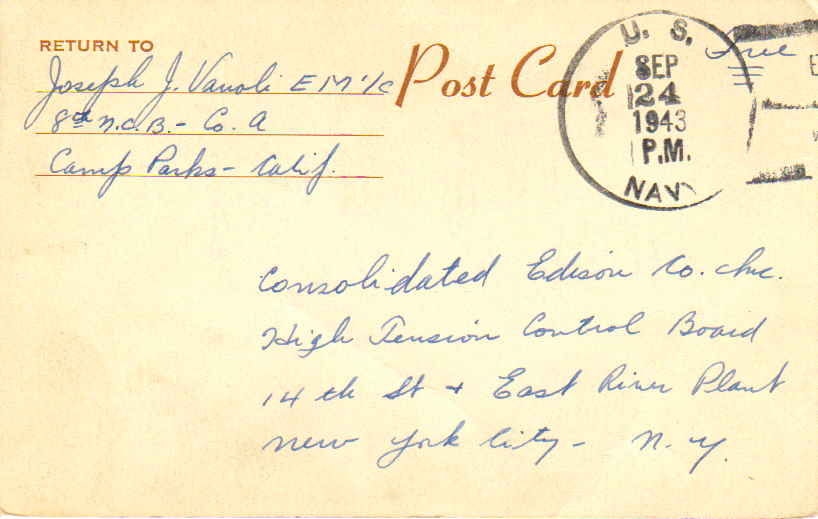 RETURN TO
Joseph J. Vanoli EM 1/c
8th N.C.B. - Co. A
Camp Parks - Calif.
Post Card
Free
U. S.
SEP
24
1943
P.M.
NAVY
Consolidated Edison Co. Inc.
High Tension Control Board
14 th St + East River Plant
New York City - N. Y.